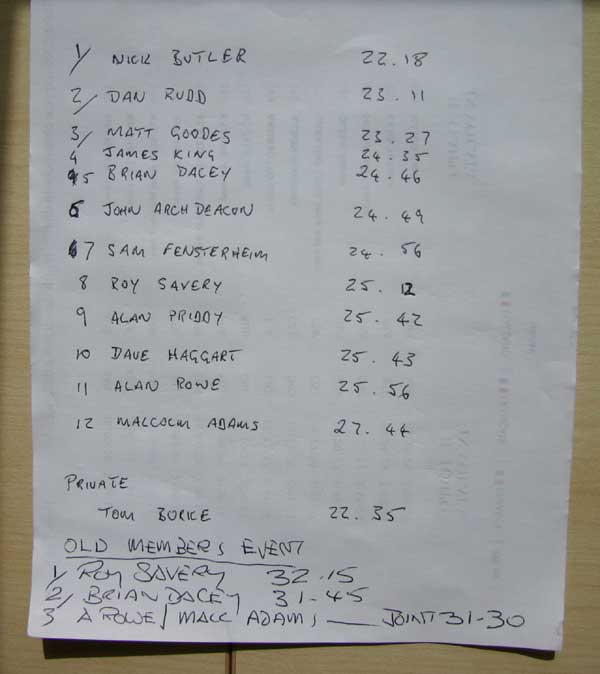 1/ NICK BUTLER 22.18
2/ DAN RUDD 23.11
3/ MATT GOODES 23.27
4 JAMES KING 24.35
5 BRIAN DACEY 24.46
6 JOHN ARCHDEACON 24.49
7 SAM FENSTERHEIM 24.56
8 ROY SAVERY 25.12
9 ALAN PRIDDY 25.42
10 DAVE HAGGART 25.43
11 ALAN ROWE 25.56
12 MALCOLM ADAMS 27.44
PRIVATE
TOM BURKE 22.35
OLD MEMBERS EVENT
1/ ROY SAVERY 32.15
2/ BRIAN DACEY 31-45
3 A ROWE / MALC ADAMS — JOINT 31-30